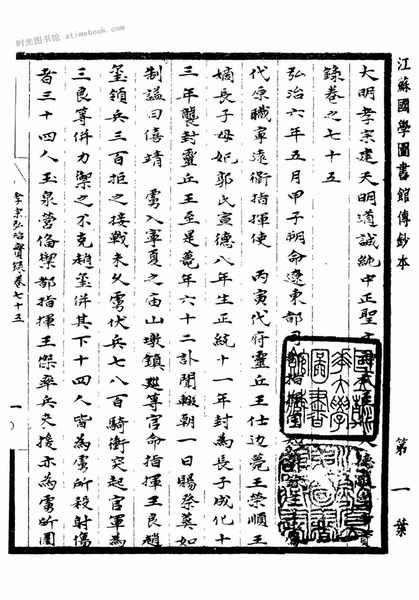 时光图书馆 atimebook.com
江蘇國學圖書館傳鈔本
第一葉
大明孝宗建天明道誠純中正聖
錄卷之七十五
弘治六年五月甲子朔命遼東都司都指揮
代原職寧遠衛指揮使 丙寅代府靈丘王仕𡐤薨王榮順王
嫡長子母妃郭氏宣德八年生正統十一年封為長子成化十
三年襲封靈丘王至是薨年六十二訃聞輟朝一日賜祭葬如
制謚曰僖靖 虜入寧夏之廟山墩鎮巡等官命指揮王良趙
璽領兵三百拒之接戰未久虜伏兵七八百騎衝突起官軍為
三良等併力禦之不克趙璽併其下十四人皆為虜所殺射傷
者三十四人玉泉營備禦都指揮王傑率兵夾援亦為虜所圍
孝宗弘治實錄卷七十五
一